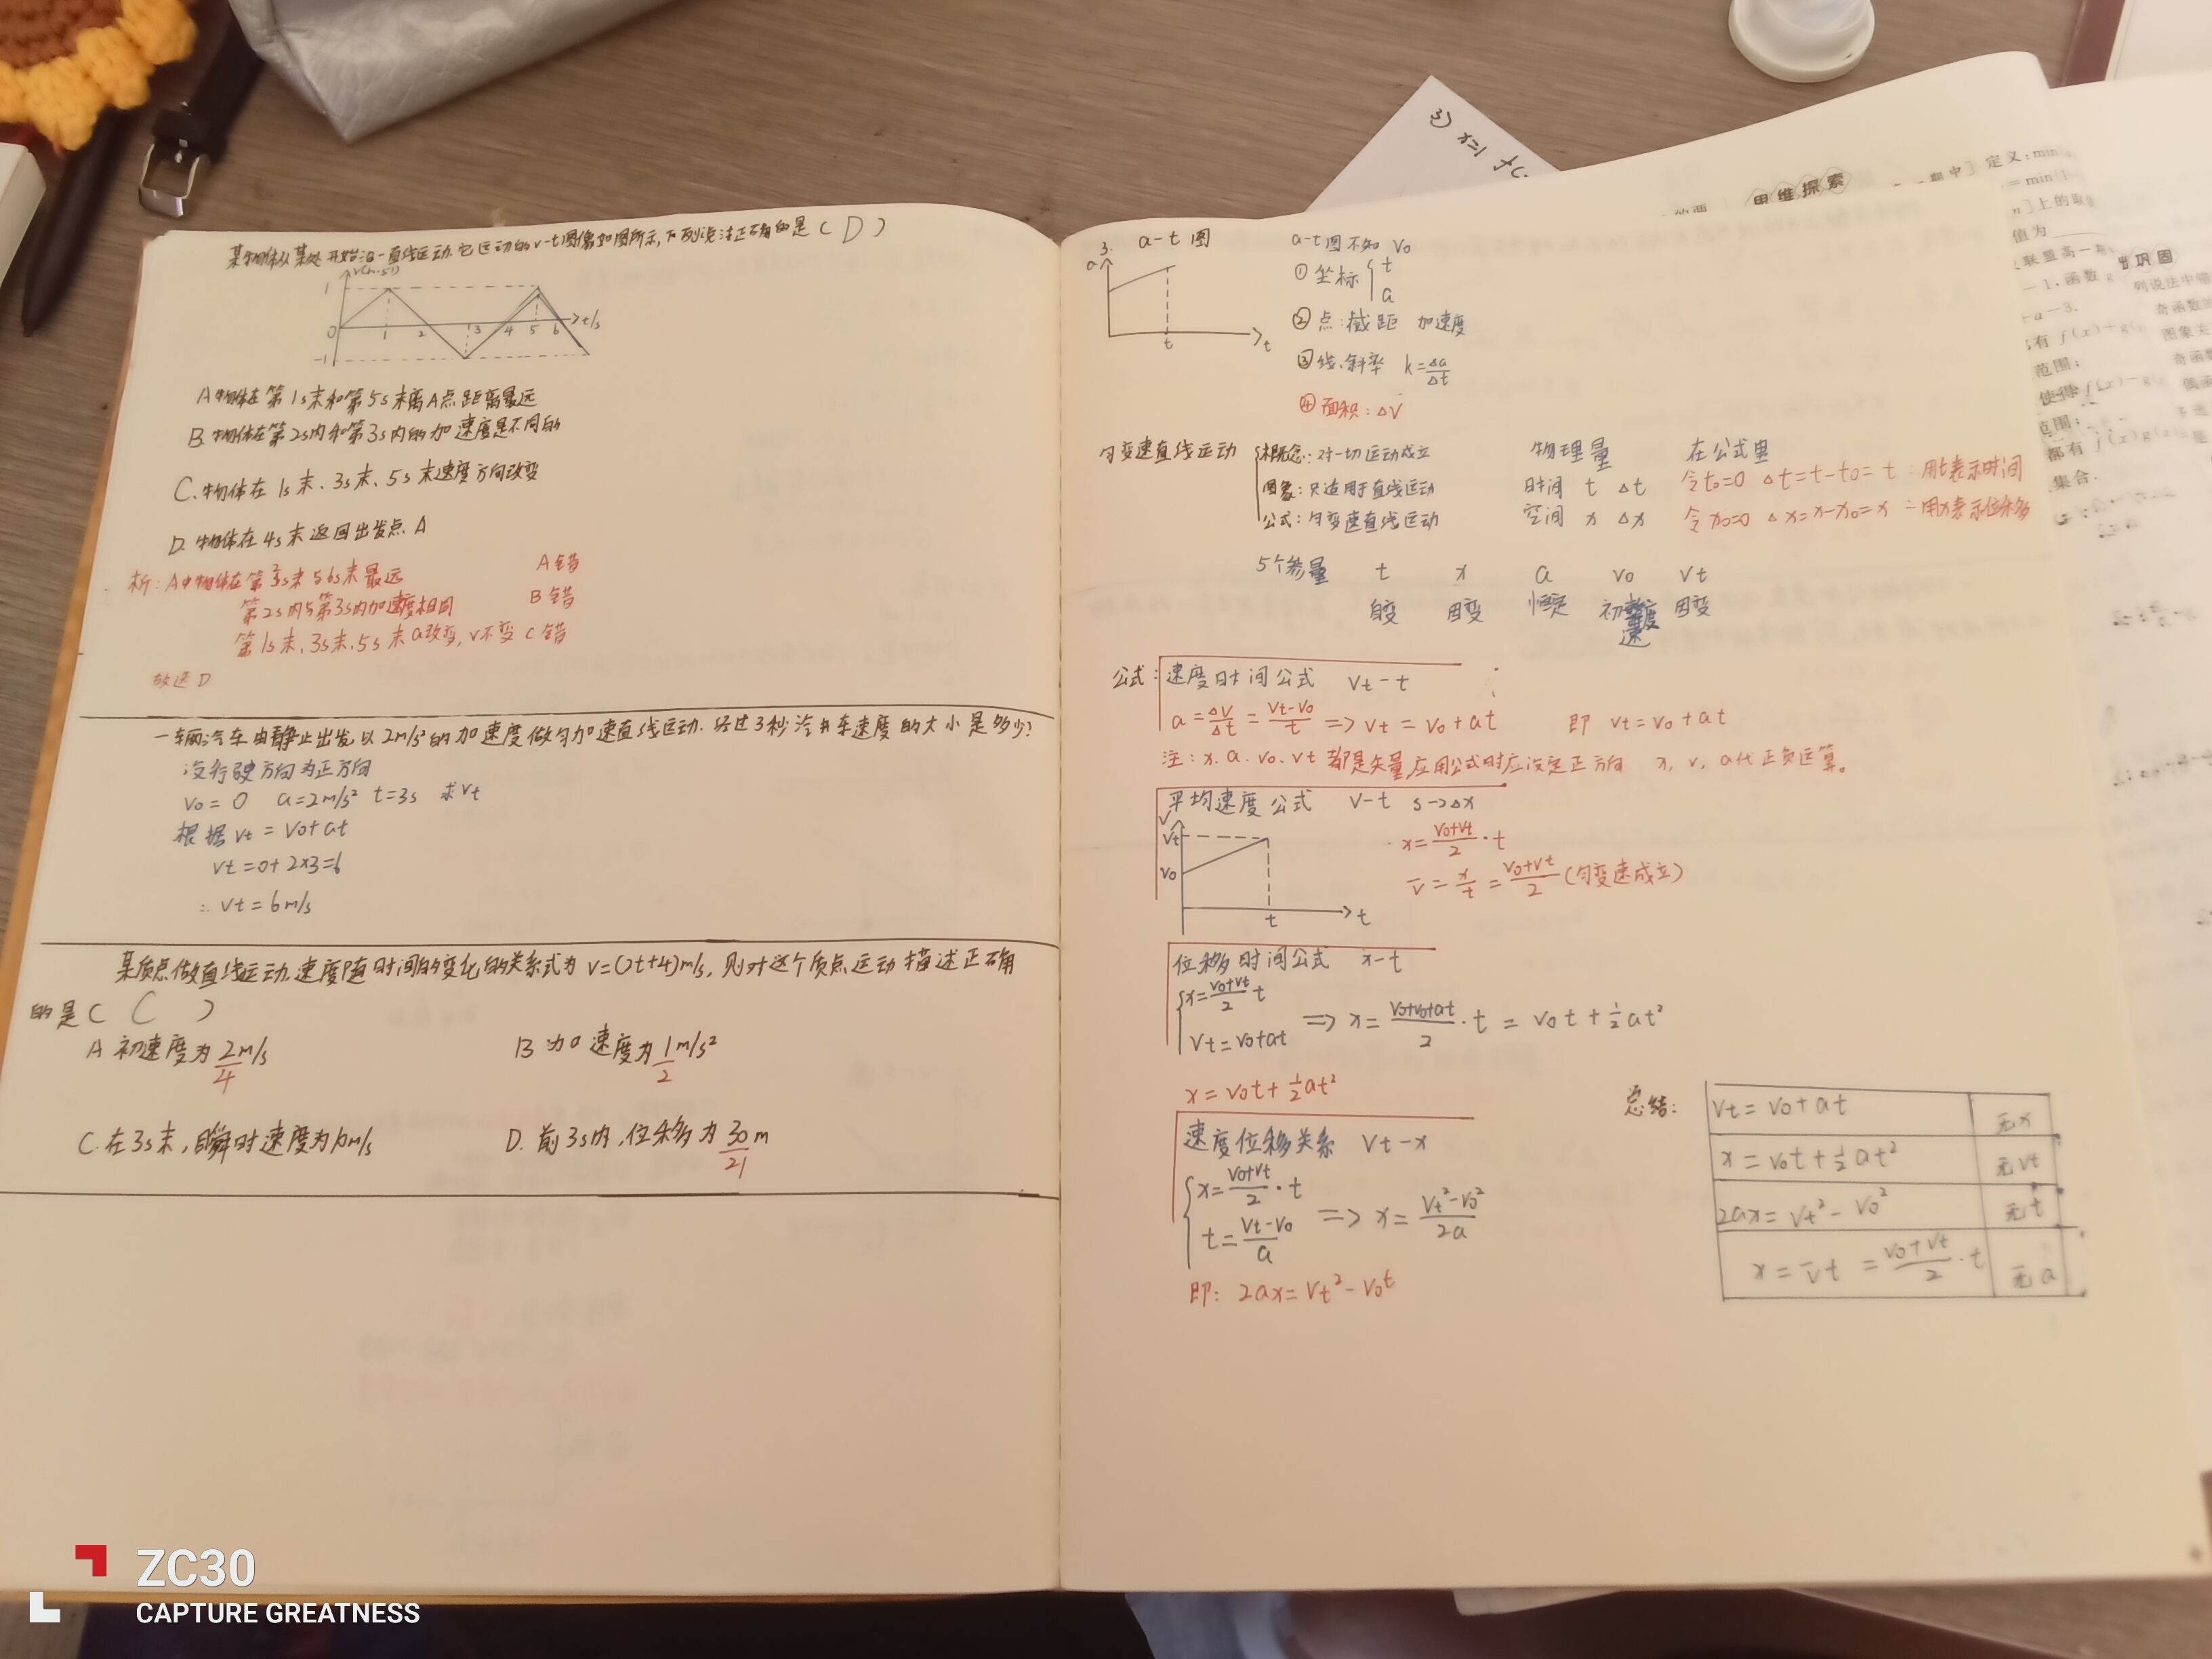 某物体从某处开始沿一直线运动.它运动的v-t图像如图所示,下列说法正确的是(D)
v(m·s⁻¹)
1
0 1 2 3 4 5 6 t/s
-1
A 物体在第1s末和第5s末离A点距离最远
B.物体在第2s内和第3s内的加速度是不同的
C.物体在1s末、3s末、5s末速度方向改变
D.物体在4s末返回出发点A
析:A中物体在第 末与6s末最远 A错
第2s内与第3s内加速度相同 B错
第1s末、3s末、5s末a改变,v不变 C错
故选D
一辆汽车由静止出发以2m/s²的加速度做匀加速直线运动.经过3秒 汽车速度的大小是多少?
设行驶方向为正方向
v₀=0 a=2m/s² t=3s 求vt
根据vt=v₀+at
vt=0+2×3=6
∴vt=6m/s
某质点做直线运动,速度随时间的变化的关系式为v=(2t+4)m/s,则对这个质点运动描述正确
的是( C )
A 初速度为2m/s B 加速度为1m/s²
4 2
C.在3s末,瞬时速度为10m/s D.前3s内,位移为30m
21
3. a-t图 a-t图不知v₀
a
t
t
①坐标{t
a
②点:截距 加速度
③线:斜率 k=Δa/Δt
④面积:Δv
匀变速直线运动{概念:对一切运动成立 物理量 在公式里
图象:只适用于直线运动 时间 t Δt 令t₀=0 Δt=t-t₀=t ∴用t表示时间
公式:匀变速直线运动 空间 x Δx 令x₀=0 Δx=x-x₀=x ∴用x表示位移
5个参量 t x a v₀ vt
自变 因变 恒定 初速度 因变
公式:速度时间公式 vt-t
a=Δv/Δt=(vt-v₀)/t=>vt=v₀+at 即 vt=v₀+at
注:x.a.v₀.vt都是矢量,应用公式时应设定正方向 x,v,a代正负运算。
平均速度公式 v-t s->Δx
v
vt
v₀
t
t
x=(v₀+vt)/2·t
v̄=x/t=(v₀+vt)/2(匀变速成立)
位移时间公式 x-t
{x=(v₀+vt)/2 t
vt=v₀+at
=>x=(v₀+v₀+at)/2·t=v₀t+½at²
x=v₀t+½at²
速度位移关系 vt-x
{x=(v₀+vt)/2·t
t=(vt-v₀)/a
=>x=(vt²-v₀²)/2a
即:2ax=vt²-v₀t
总结:
vt=v₀+at 无x
x=v₀t+½at² 无vt
2ax=vt²-v₀² 无t
x=v̄t=(v₀+vt)/2·t 无a
3) x=1
思维探索
定义:min
期中]
]上的取
值为
联盟高一
巩固
列说法中错
-1.函数
奇函数
图象关
有f(x)+g(
范围:
都有f(x)g(x)
集合.
ZC30
CAPTURE GREATNESS